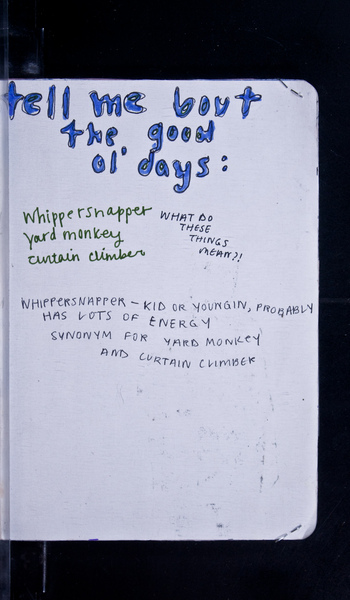 tell me bout
the good
ol' days:
Whippersnapper
yard monkey
curtain climber
WHAT DO
THESE
THINGS
MEAN?!
WHIPPERSNAPPER – KID OR YOUNGIN, PROBABLY
HAS LOTS OF ENERGY
SYNONYM FOR YARD MONKEY
AND CURTAIN CLIMBER